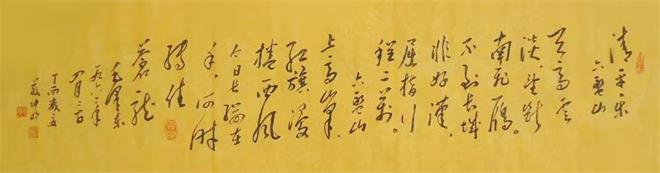 清平乐
六盘山
天高云
淡望断
南飞雁。
不到长城
非好汉,
屈指行
程二万。
六盘山
上高峰,
红旗漫
捲西风
今日长缨在
手,何时
缚住
苍龙
毛泽东
一九六二年
丁酉岁